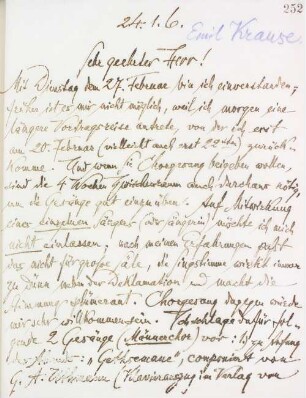 252
24.1.6.
Emil Krause
Sehr geehrter Herr!
Mit Dienstag den 27. Februar bin ich einverstanden;
früher ist es mir nicht möglich, weil ich morgen eine
längere Vortragsreise antrete, von der ich erst
am 20. Februar (vielleicht auch erst 22ten) zurück-
komme. Und wenn Sie Chorgesang beigeben wollen,
sind die 4 Wochen Zwischenraum auch durchaus nötig,
um die Gesänge gut einzuüben. Auf Mitwirkung
eines einzelnen Sängers oder Sängerin möchte ich mich
nicht einlassen; nach meinen Erfahrungen paßt
das nicht für große Säle, die Singstimme wirkt immer
zu dünn neben der Deklamation und macht die
Stimmung schwankt. Chorgesang dagegen würde
mir sehr willkommen sein. Vorschlage dafür fol-
gende 2 Gesänge (Männerchor) vor: 1) zu Anfang
des Abends: "Gethsemane", componiert von
G. A. (Klavierauszug im Verlag von